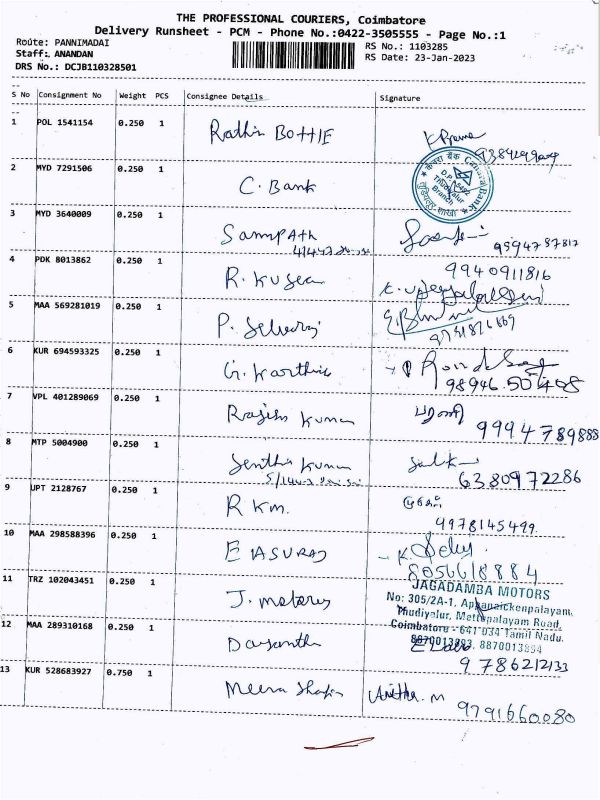 THE PROFESSIONAL COURIERS, Coimbatore
Delivery Runsheet - PCM - Phone No.:0422-3505555 - Page No.:1
Route: PANNIMADAI
RS No.: 1103285
Staff: ANANDAN
RS Date: 23-Jan-2023
DRS No.: DCJB110328501
S No Consignment No Weight PCS Consignee Details Signature
1 POL 1541154 0.250 1 Rathin BOTTIE
2 MYD 7291506 0.250 1 C. Bank
केनरा बैंक Canara Bank
Thudiyalur
Branch
3 MYD 3640009 0.250 1 SAMPATH
4 PDK 8013862 0.250 1 R. Kusea 9940911816
5 MAA 569281019 0.250 1 P. Selvaraj
6 KUR 694593325 0.250 1 G. Karthic
7 VPL 401289069 0.250 1 Rajesh Kumar பழனி
9994789888
8 MTP 5004900 0.250 1 Senthil Kumar
6380972286
9 UPT 2128767 0.250 1 R Km.
9978145499
10 MAA 298588396 0.250 1 EASURAJ
8056618884
11 TRZ 102043451 0.250 1 J. motors
JAGADAMBA MOTORS
No: 305/2A-1, Appanaickenpalayam,
Thudiyalur, Mettupalayam Road,
Coimbatore - 641 034 Tamil Nadu.
8870013893, 8870013894
12 MAA 289310168 0.250 1 Dayanthi
9786212133
13 KUR 528683927 0.750 1 Meera Anitha. M
9791660080